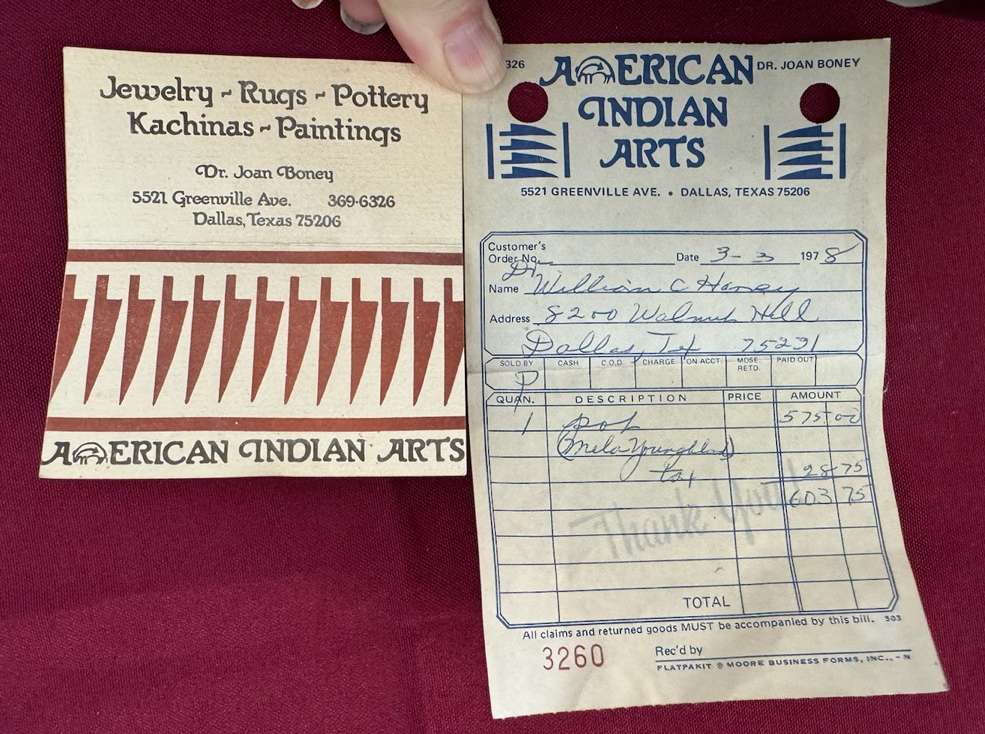 Jewelry ~ Rugs ~ Pottery
Kachinas ~ Paintings
Dr. Joan Boney
5521 Greenville Ave. 369-6326
Dallas, Texas 75206
AMERICAN INDIAN ARTS
326
AMERICAN DR. JOAN BONEY
INDIAN
ARTS
5521 GREENVILLE AVE. • DALLAS, TEXAS 75206
Customer's
Order No. Date 3-3 1978
Dr.
Name William C Haney
Address 8200 Walnut Hill
Dallas, Tex 75231
SOLD BY CASH C.O.D. CHARGE ON ACCT. MDSE. RETD. PAID OUT
QUAN. DESCRIPTION PRICE AMOUNT
1 pot 575 00
(Mela Youngblood)
tax 28 75
603 75
Thank You!
TOTAL
All claims and returned goods MUST be accompanied by this bill. 303
3260 Rec'd by
FLATPAKIT ® MOORE BUSINESS FORMS, INC., - N